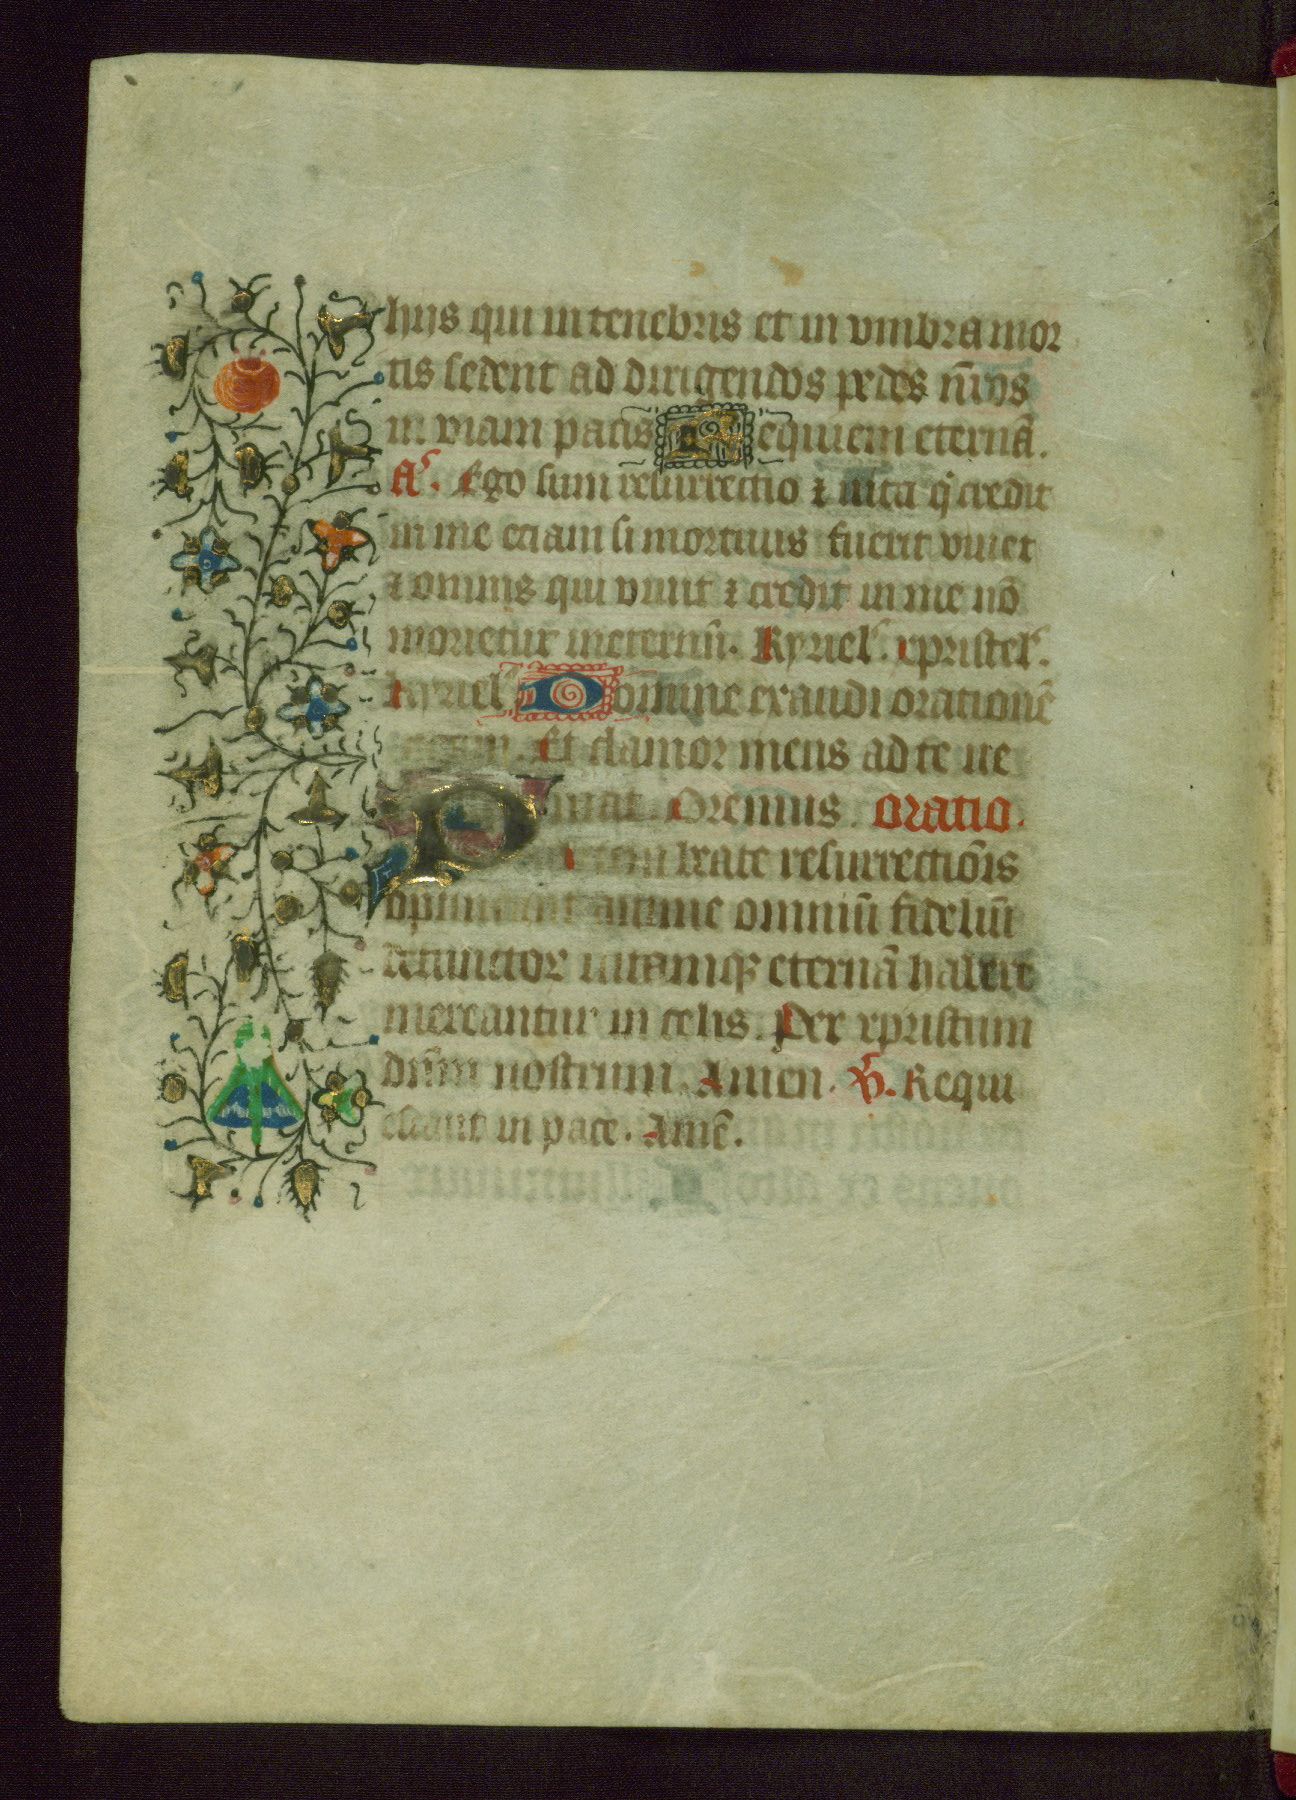 hijs qui in tenebris et in vmbra mor
tis sedent ad dirigendos pedes nr̄os
in viam pacis Requiem eternā.
Aͬ. Ego sum resurrectio ⁊ uita q̇ credit
in me eciam si mortuus fuerit viuet
⁊ omnis qui viuit ⁊ credit in me nō
morietur ineternū. Kyriel'. xpristel'.
kyriel' Domine exaudi orationē
meam. Et clamor meus ad te ue
niat. Oremus. Oratio.
P beate resurrectiōis
optineant anime omniū fideliū
defunctor uitamqꝫ eternā habere
mereantur in celis. Per xpristum
dn̄m nostrum. Amen. V̄. Requi
escant in pace. Amē.